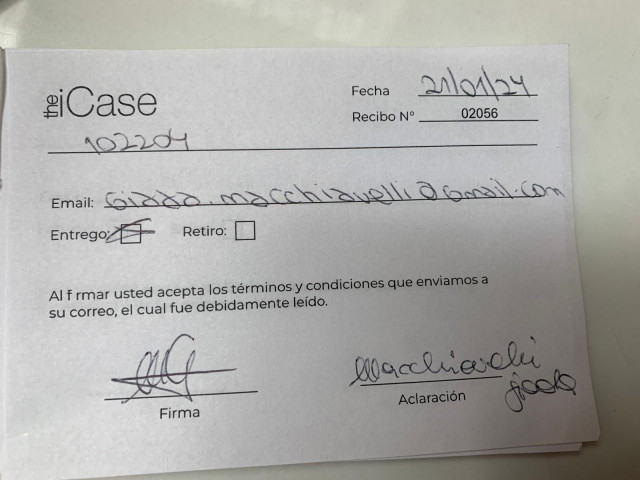 the iCase
Fecha 21/01/24
Recibo N° 02056
102204
Email: Giada.macchiavelli@Gmail.com
Entrego: Retiro:
Al f rmar usted acepta los términos y condiciones que enviamos a
su correo, el cual fue debidamente leído.
Macchiavelli
giada
Firma Aclaración